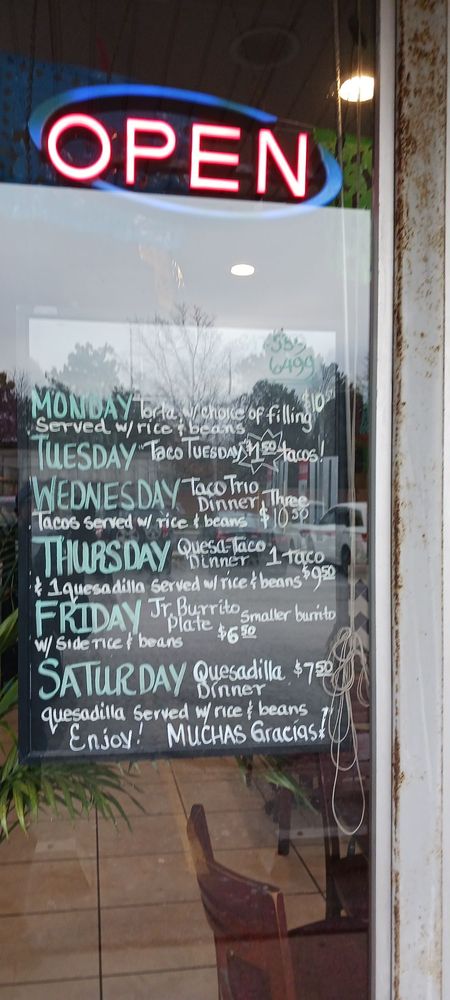 OPEN
533
6499
MONDAY Torta w/ choice of filling $10
Served w/ rice & beans
TUESDAY "Taco Tuesday" $1.50 tacos!
WEDNESDAY Taco Trio
Dinner, Three
Tacos served w/ rice & beans $10.50
THURSDAY Quesa-Taco
Dinner 1 taco
& 1 quesadilla served w/ rice & beans $9.50
FRIDAY Jr. Burrito
Plate Smaller burrito
w/ side rice & beans $6.50
SATURDAY Quesadilla $7.50
Dinner
quesadilla served w/ rice & beans
Enjoy! MUCHAS Gracias!